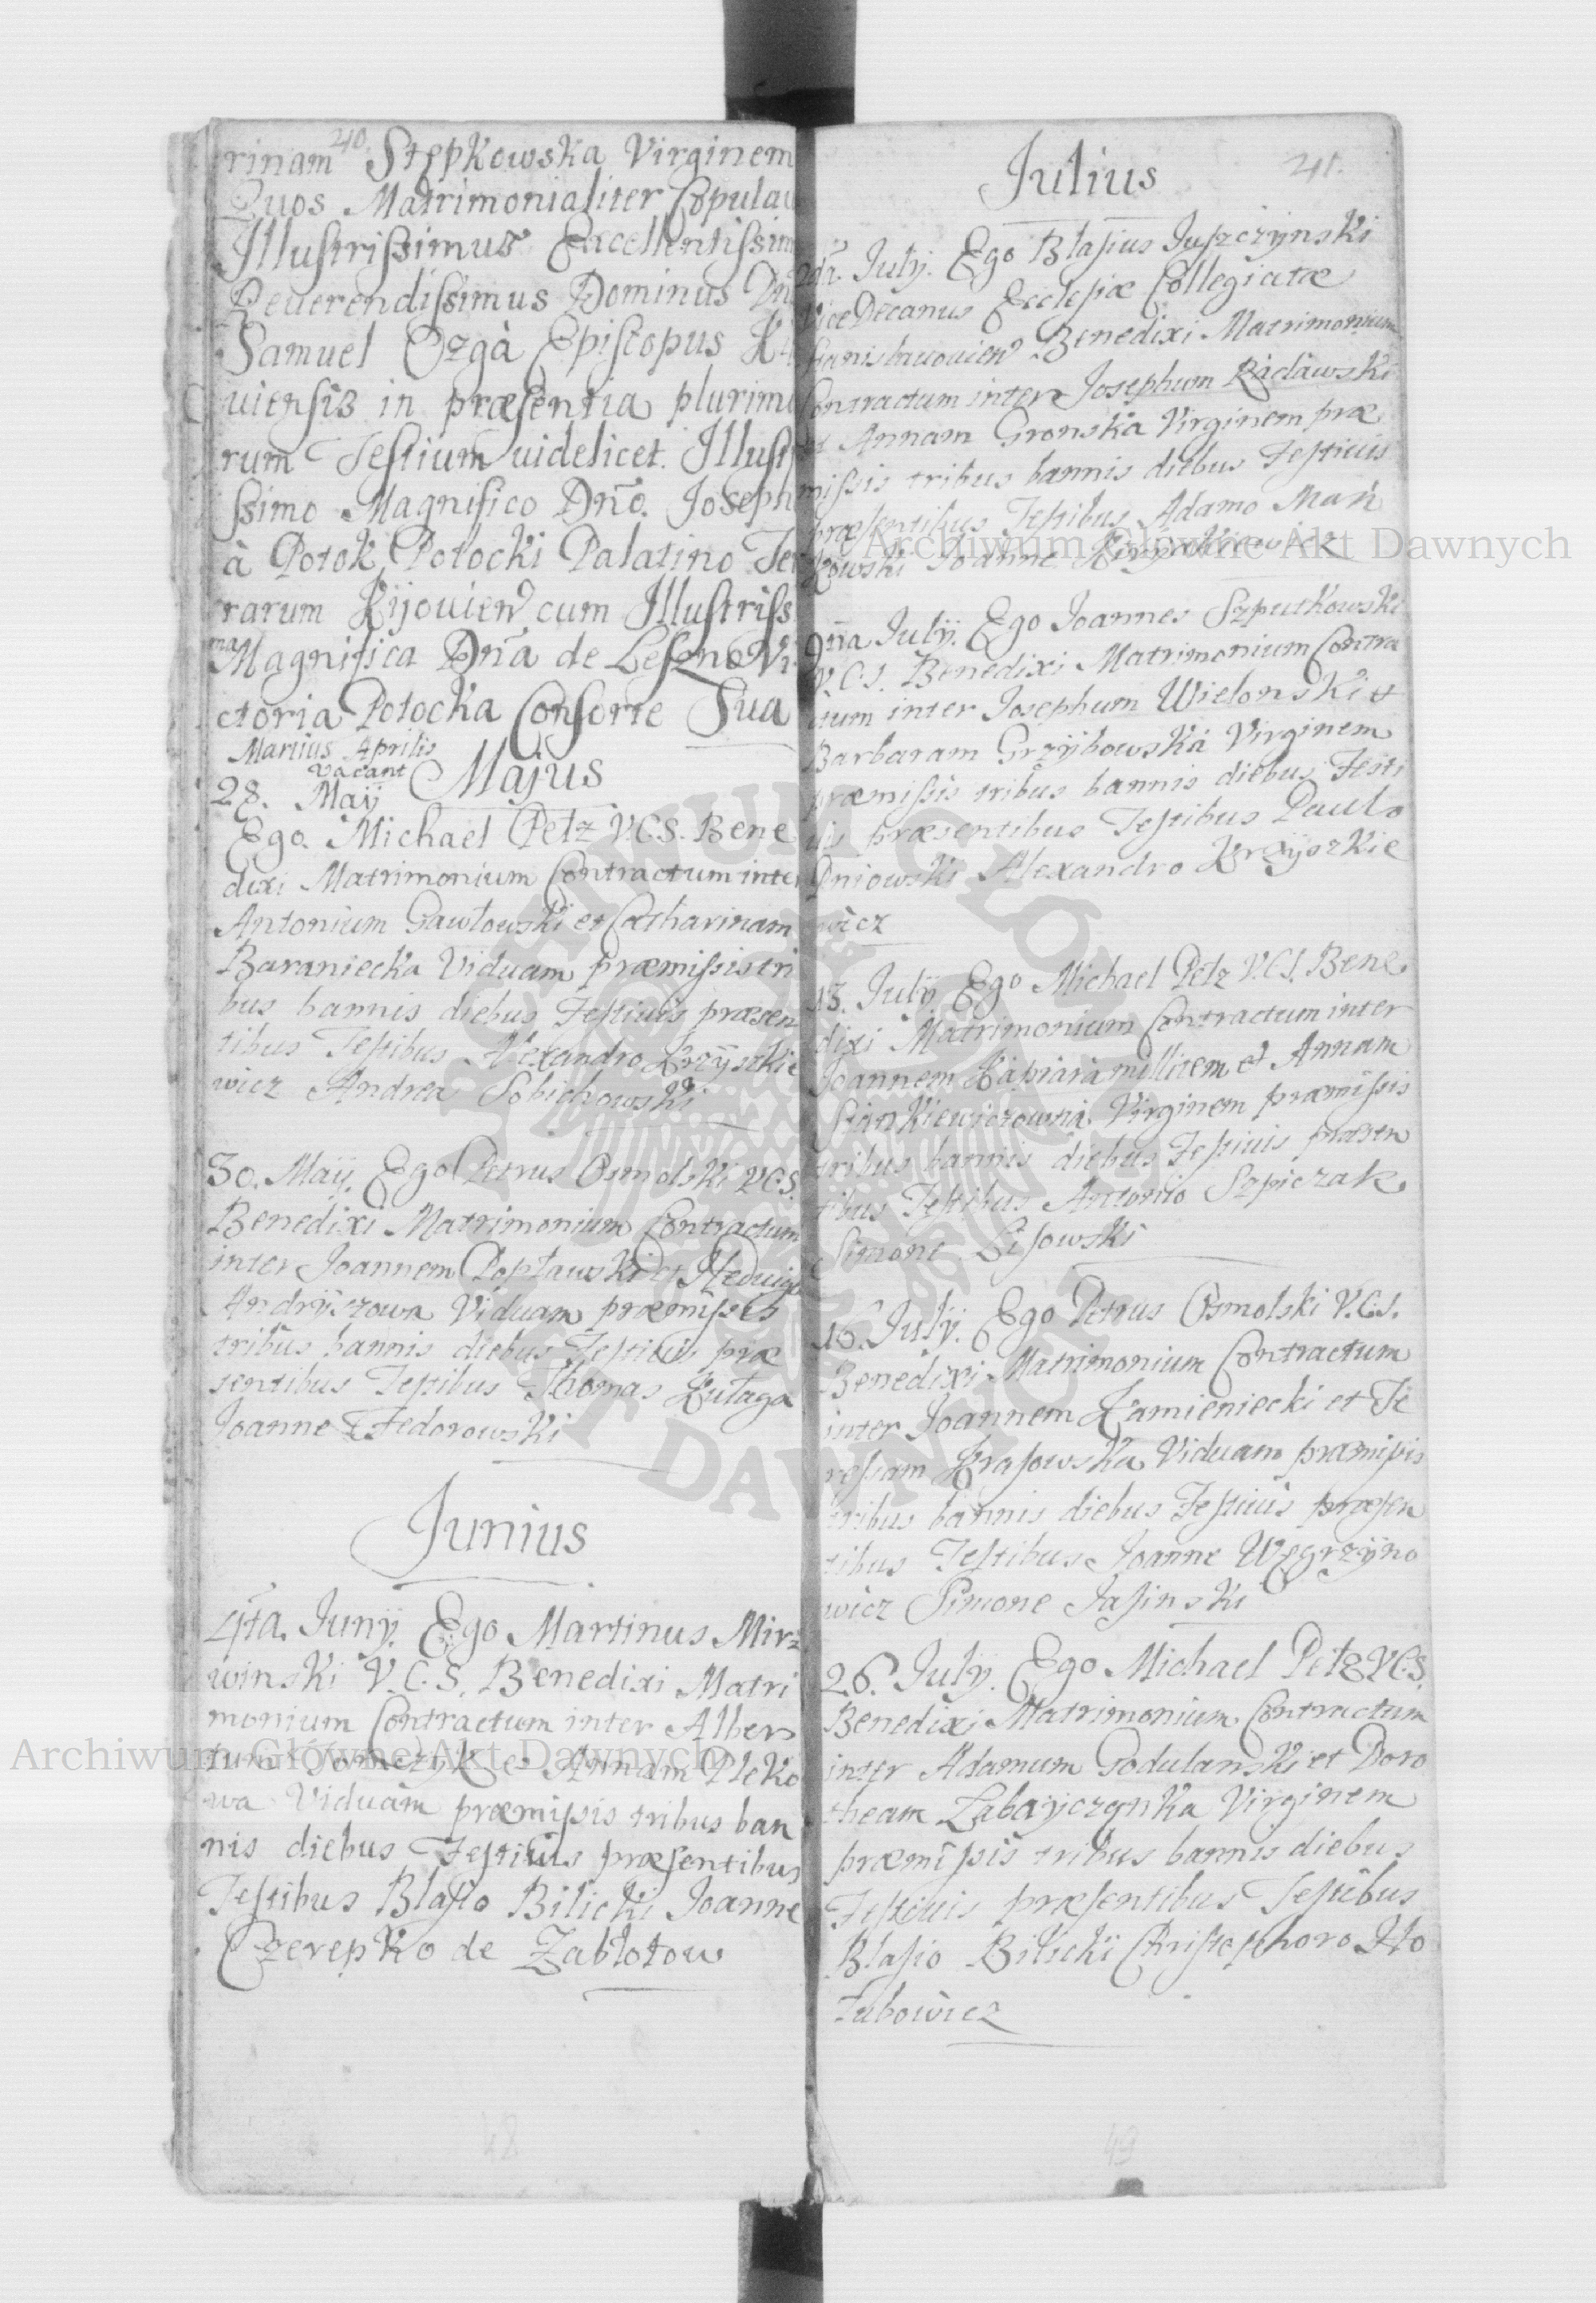 40.
rinam Stępkowska Virginem
Quos Matrimonialiter Copulau
Illustrissimus Excellentissim
Reuerendissimus Dominus Dn
Samuel Ozgà Episcopus Ki
uiensis in præsentia plurimo
rum Testium uidelicet. Illustr
ssimo Magnifico Dño. Joseph
à Potok Potocki Palatino Ter
rarum Kijouien cum Illustriss
ma Magnifica Dñá de Leszno Vi
ctoria Potocka Consorte Sua
Martius Aprilis
vacant Majus
28. Maÿ
Ego Michael Petz V.C.S. Bene
dixi Matrimonium Contractum inter
Antonium Gawłowski et Catharinam
Baraniecka Viduam præmissis tri
bus bannis diebus Festiuis præsen
tibus Testibus Alexandro Krzÿszkie
wicz Andrea Sobichowski
30. Maÿ. Ego Petrus Osmolski V.C.S.
Benedixi Matrimonium Contractum
inter Joannem Popławski et Hedwige
Andrÿszowa Viduam præmissis
tribus bannis diebus Festiuis præ
sentibus Testibus Thomas Kułaga
Joanne Fedorowski
Junius
4ta. Junÿ. Ego Martinus Mirz
winski V.C.S. Benedixi Matri
monium Contractum inter Alber
tum Tomczÿk et Annam Pleko
wa Viduam præmissis tribus ban
nis diebus Festiuis præsentibus
Testibus Blasio Bilicki Joanne
Czerepko de Zabłotow
48
Julius 241.
2da. Julÿ. Ego Blasius Juszczÿnski
ViceDecanus Ecclesiæ Collegiatæ
Stanislauouien Benedixi Matrimonium
Contractum inter Josephum Racławski
et Annam Gronska Virginem præ
missis tribus bannis diebus Festiuis
præsentibus Testibus Adamo Mań
kowski Joanne
9na Julÿ. Ego Joannes Szputkowski
V.C.S. Benedixi Matrimonium Contra
ctum inter Josephum Wielonski et
Barbaram Grzÿbowska Virginem
præmissis tribus bannis diebus Festi
uis præsentibus Testibus Paulo
Dniowski Alexandro Krzÿszkie
wicz
13. Julÿ Ego Michael Petz V.C.S. Bene
dixi Matrimonium Contractum inter
Joannem Kapiara millitem et Annam
Stankiewiczowna Virginem præmissis
tribus bannis diebus Festiuis præsen
tibus Testibus Antonio Szpiczak
Simone Lisowski
16. Julÿ. Ego Petrus Osmolski V.C.S.
Benedixi Matrimonium Contractum
inter Joannem Kamieniecki et Te
resiam Krasowska Viduam præmissis
tribus bannis diebus Festiuis præsen
tibus Testibus Joanne Węgrzÿno
wicz Simone Jasinski
26. Julÿ. Ego Michael Petz V.C.S.
Benedixi Matrimonium Contractum
inter Adamum Godulanski et Doro
theam Zabaÿczanka Virginem
præmissis tribus bannis diebus
Festiuis præsentibus Testibus
Blasio Bilickÿ Christophoro Ho
łubowicz
49
Archiwum Główne Akt Dawnych
Archiwum Główne Akt Dawnych
ARCHIWUM GŁÓWNE AKT DAWNYCH